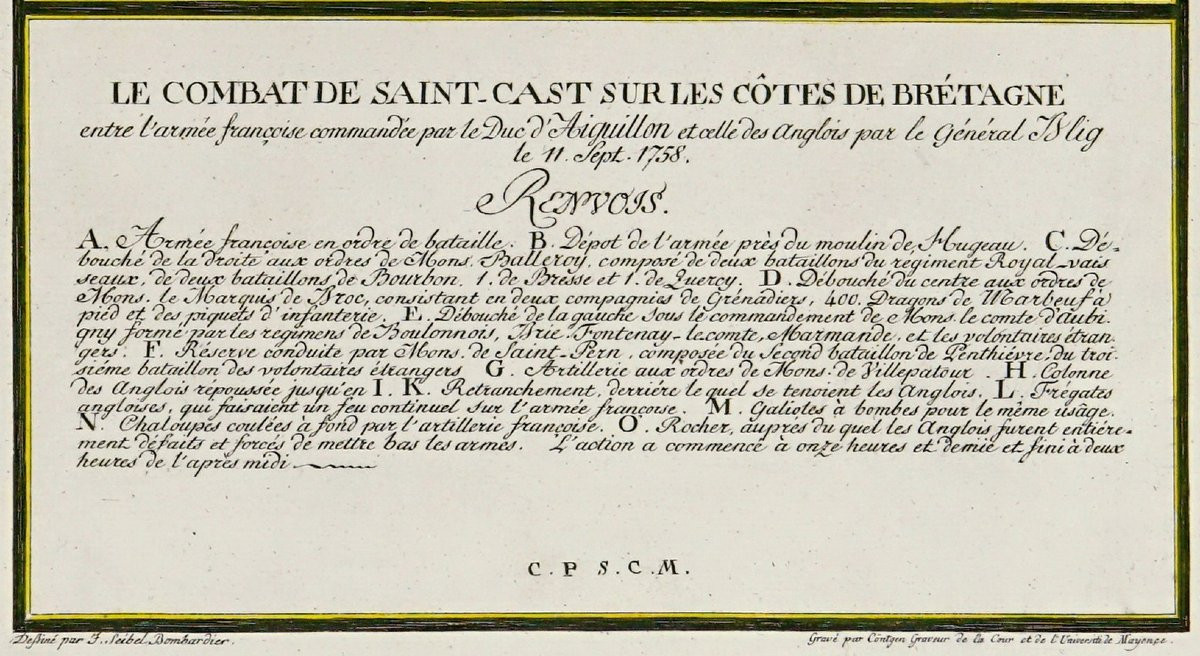 LE COMBAT DE SAINT-CAST SUR LES CÔTES DE BRÉTAGNE
entre l'armée françoise commandée par le Duc d'Aiguillon et celle des Anglois par le Général Blig
le 11. Sept. 1758.
RENVOIS.
A. Armée françoise en ordre de bataille. B. Dépot de l'armée près du moulin de Hugeau. C. Dé-
bouché de la droite aux ordres de Mons. Balleroy, composé de deux bataillons du régiment Royal-vais
seaux, de deux bataillons de Bourbon. 1. de Bresse et 1. de Quercy. D. Débouché du centre aux ordres de
Mons. le Marquis de Broc, consistant en deux compagnies de Grénadiers, 400. Dragons de Marbeuf à
pied et des piquets d'infanterie. E. Débouché de la gauche sous le commandement de Mons. le comte d'aubi
gny formé par les regimens de Boulonnois, Brie, Fontenay-le comte, Marmande, et les volontaires étran
gers. F. Réserve conduite par Mons. de Saint-Pern, composée du Second bataillon de Penthièvre, du troi
sième bataillon des volontaires étrangers G. Artillerie aux ordres de Mons. de Villepatour. H. Colonne
des Anglois répoussée jusqu'en I. K. Retranchement, derriére le quel se tenoient les Anglois. L. Frégates
angloises, qui faisaient un feu continuel sur l'armée françoise. M. Galiotes à bombes pour le même usage.
N. Chaloupes coulées à fond par l'artillerie françoise. O. Rocher, auprès du quel les Anglois furent entiére-
ment défaits et forcés de mettre bas les armes. L'action a commencé à onze heures et demie et fini à deux
heures de l'après midi
C. P S. C. M.
Dessiné par F. Seibel Bombardier.
Gravé par Cöntgen Graveur de la Cour et de l'Université de Mayençe.